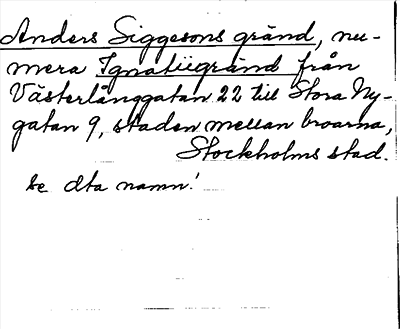 Anders Siggesons gränd, nu-
mera Ignatiigränd från
Västerlånggatan 22 till Stora Ny-
gatan 9, staden mellan broarna,
Stockholms stad.
Se dta namn!